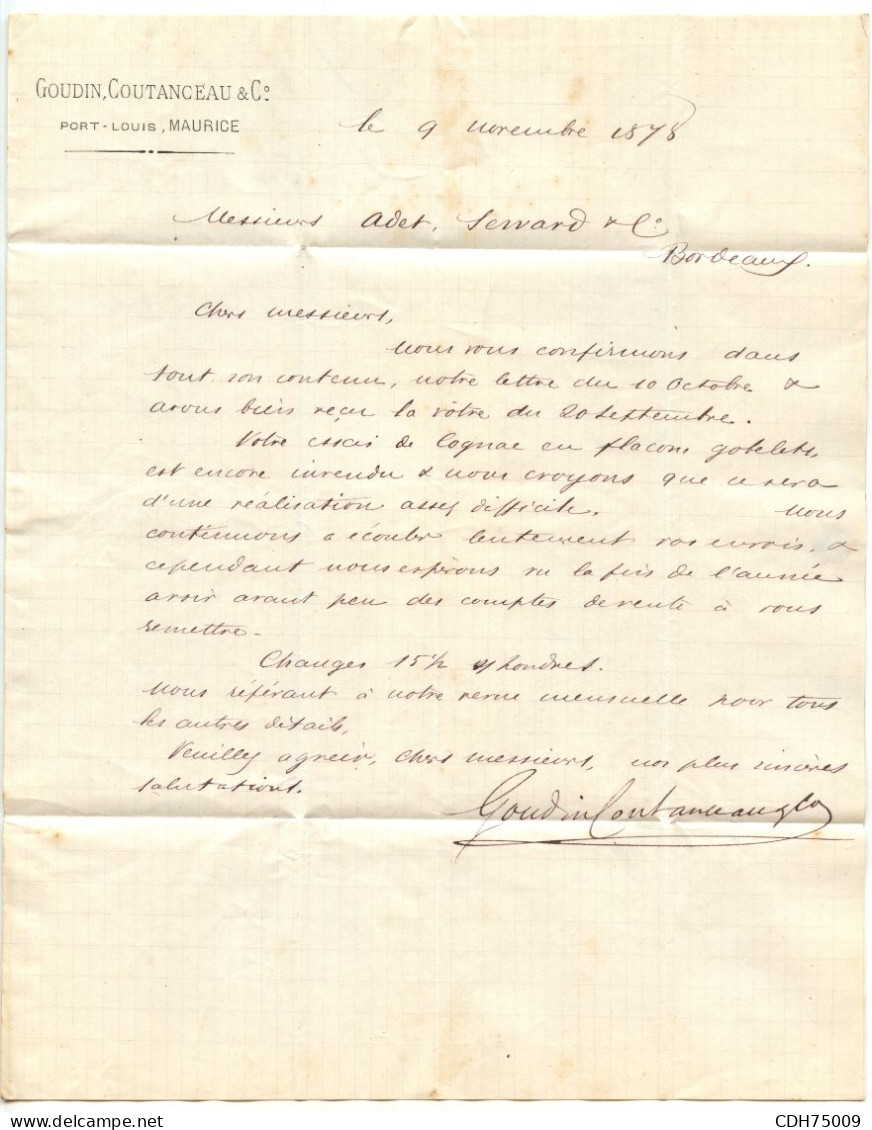 GOUDIN, COUTANCEAU & Cº
PORT-LOUIS, MAURICE
le 9 novembre 1878
Messieurs Adet, Seward & Cº
Bordeaux.
Chers messieurs,
Nous vous confirmons dans
tout son contenu, notre lettre du 10 Octobre &
avons bien reçu la vôtre du 20 Septembre.
Votre essai de Cognac en flacons gobelets,
est encore invendu & nous croyons que ce sera
d'une réalisation assez difficile. Nous
continuons a écouler lentement vos envois, &
cependant nous espérons vu la fin de l'année
avoir avant peu des comptes de vente à vous
remettre.
Changes 15½ s/ Londres.
Nous référant à notre revue mensuelle pour tous
les autres détails,
Veuillez agréer, chers messieurs, nos plus sincères
salutations.
Goudin Coutanceau & Co
CDH75009